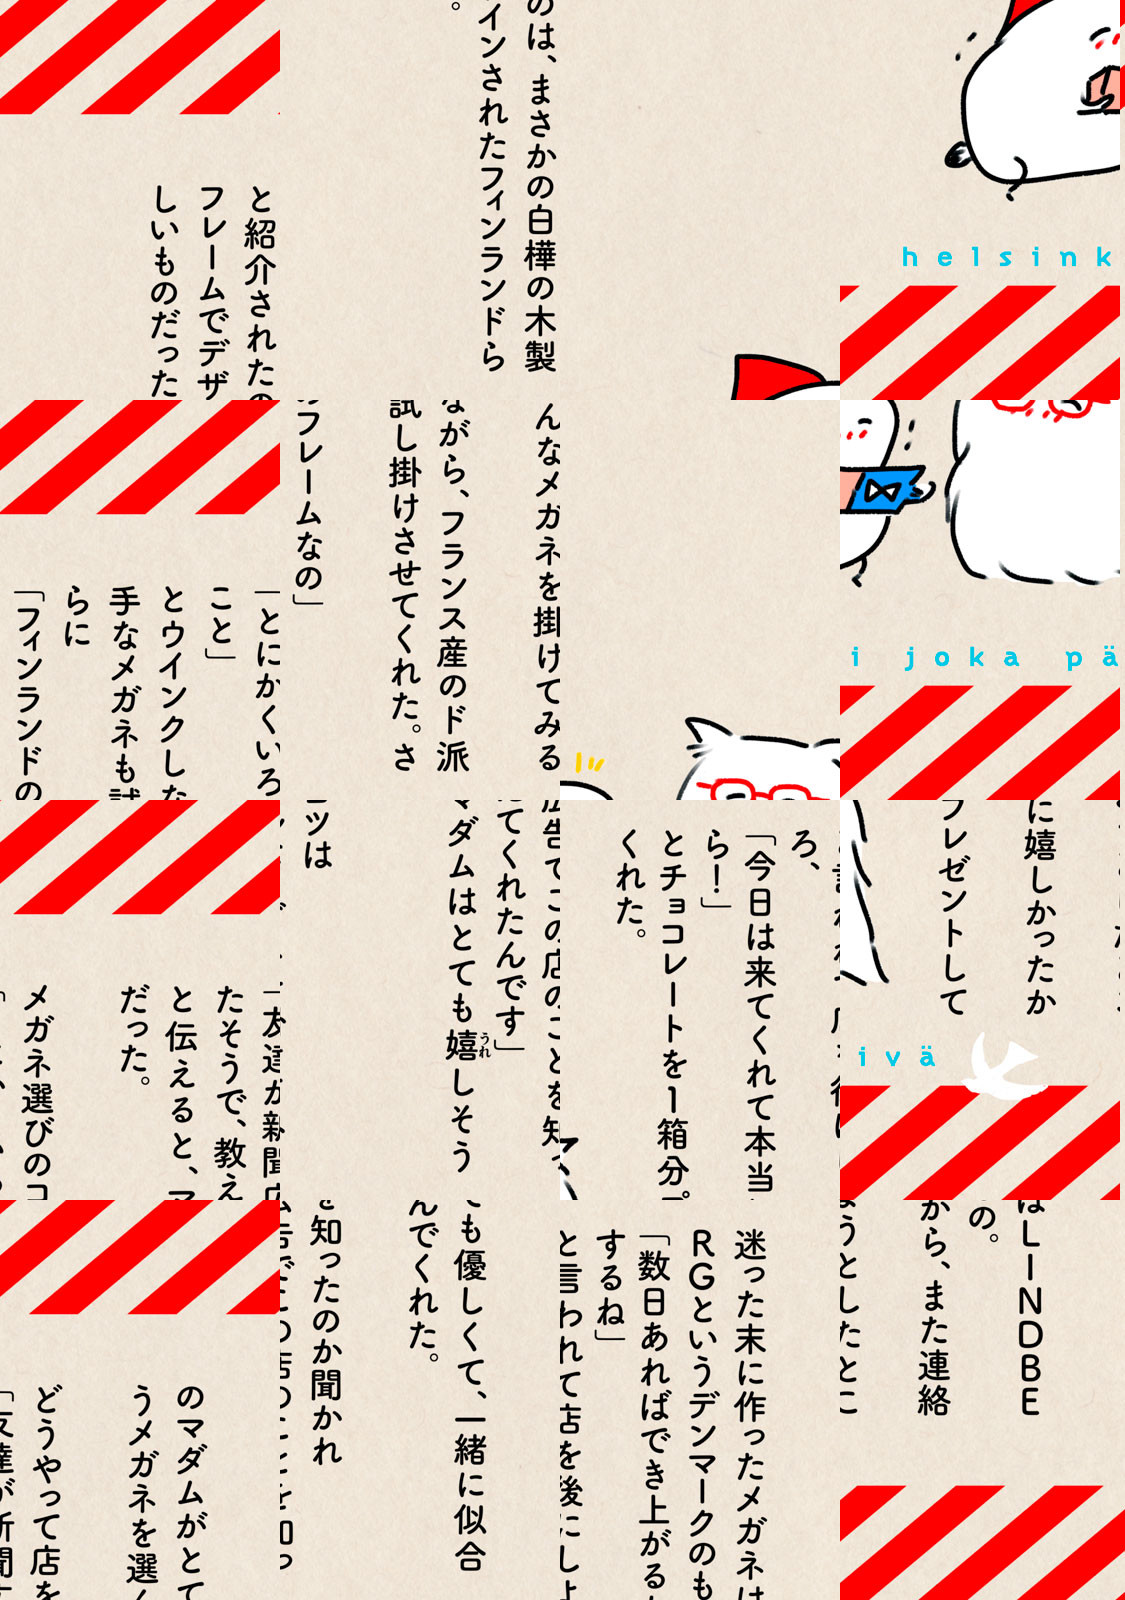 と紹介されたの
フレームでデザ
しいものだった
のは、まさかの白樺の木製
インされたフィンランドら
。
helsink
「とにかくいろ
こと」
とウインクしな
手なメガネも試
らに
「フィンランドの
んなメガネを掛けてみる
ながら、フランス産のド派
試し掛けさせてくれた。さ
のフレームなの」
i joka pä
「友達が新聞広
たそうで、教え
と伝えると、マ
だった。
メガネ選びのコ
広告でこの店のことを知っ
えてくれたんです」
マダムはとても嬉しそう
うれ
ツは
ろ、
「今日は来てくれて本当
ら!」
とチョコレートを1箱分プ
くれた。
に嬉しかったか
プレゼントして
ivä
のマダムがとて
うメガネを選ん
どうやって店を
「友達が新聞広
ても優しくて、一緒に似合
んでくれた。
を知ったのか聞かれ
広告でこの店のことを知っ
迷った末に作ったメガネは
RGというデンマークのも
「数日あればでき上がるか
するね」
と言われて店を後にしよ
はLINDBE
の。
から、また連絡
ようとしたとこ